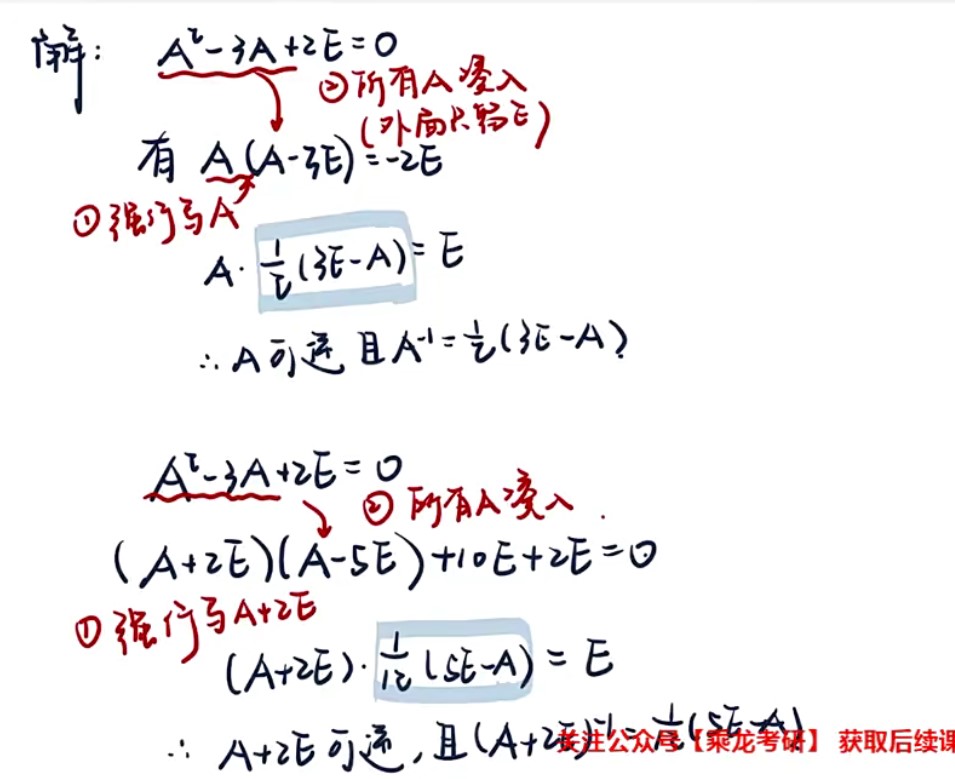 解: A²-3A+2E=0
②所有A凑入
(外面只剩E)
有 A(A-3E)=-2E
①强行写A
A·1/2(3E-A)=E
∴A可逆且A⁻¹=1/2(3E-A)
A²-3A+2E=0
②所有A凑入
(A+2E)(A-5E)+10E+2E=0
①强行写A+2E
(A+2E)·1/12(5E-A)=E
∴A+2E可逆,且(A+2E)⁻¹=1/12(5E-A)
关注公众号【乘龙考研】 获取后续课